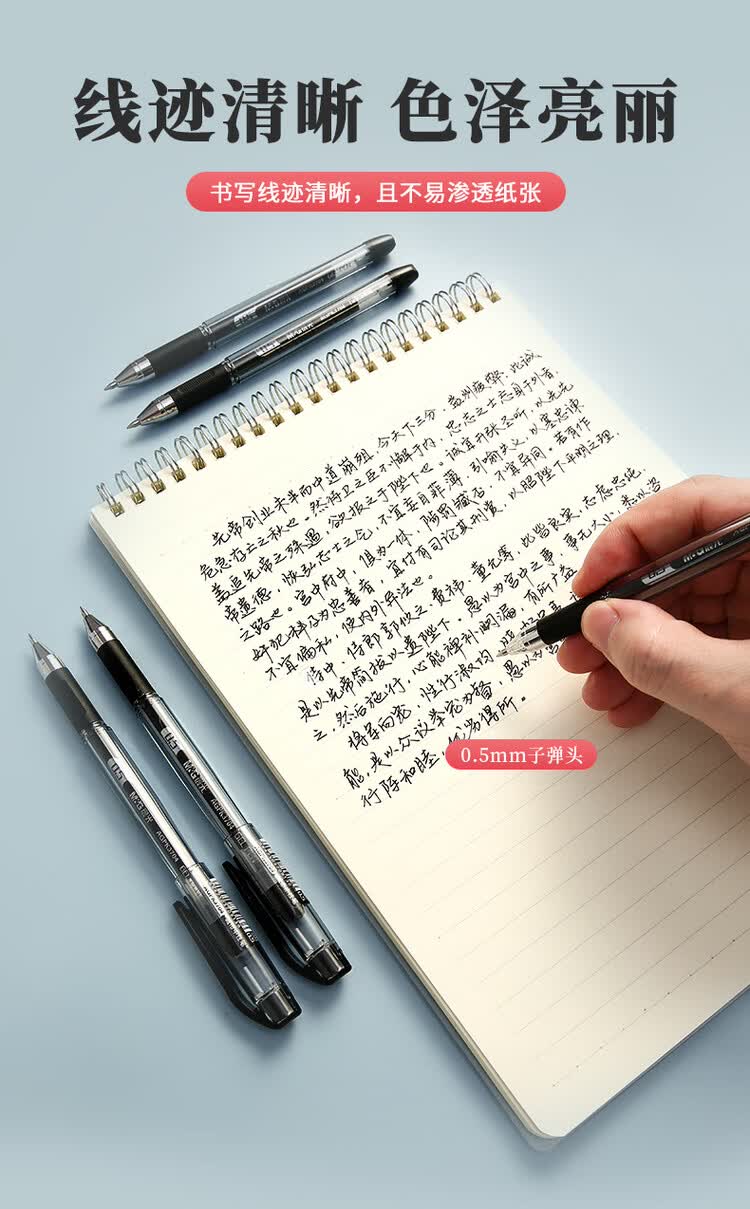 线迹清晰 色泽亮丽
书写线迹清晰，且不易渗透纸张
先帝创业未半而中道崩殂，今天下三分，益州疲弊，此诚
危急存亡之秋也。然侍卫之臣不懈于内，忠志之士忘身于外者，
盖追先帝之殊遇，欲报之于陛下也。诚宜开张圣听，以光先
帝遗德，恢弘志士之气，不宜妄自菲薄，引喻失义，以塞忠谏
之路也。宫中府中，俱为一体，陟罚臧否，不宜异同。若有作
奸犯科及为忠善者，宜付有司论其刑赏，以昭陛下平明之理，
不宜偏私，使内外异法也。
侍中、侍郎郭攸之、费祎、董允等，此皆良实，志虑忠纯，
是以先帝简拔以遗陛下。愚以为宫中之事，事无大小，悉以咨
之，然后施行，必能裨补阙漏，有所广益
将军向宠，性行淑均
能，是以众议举宠为督，愚以为
行阵和睦，优劣得所。
0.5mm子弹头
0.5 M&G晨光 AGPK3704 GEL
0.5 M&G晨光 AGPK3704 GEL
0.5 M&G晨光